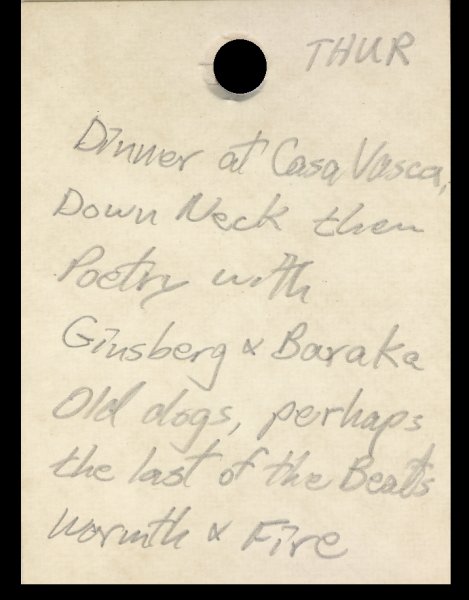 THUR
Dinner at Casa Vasca,
Down Neck then
Poetry with
Ginsberg & Baraka
Old dogs, perhaps
the last of the Beats
Warmth & Fire